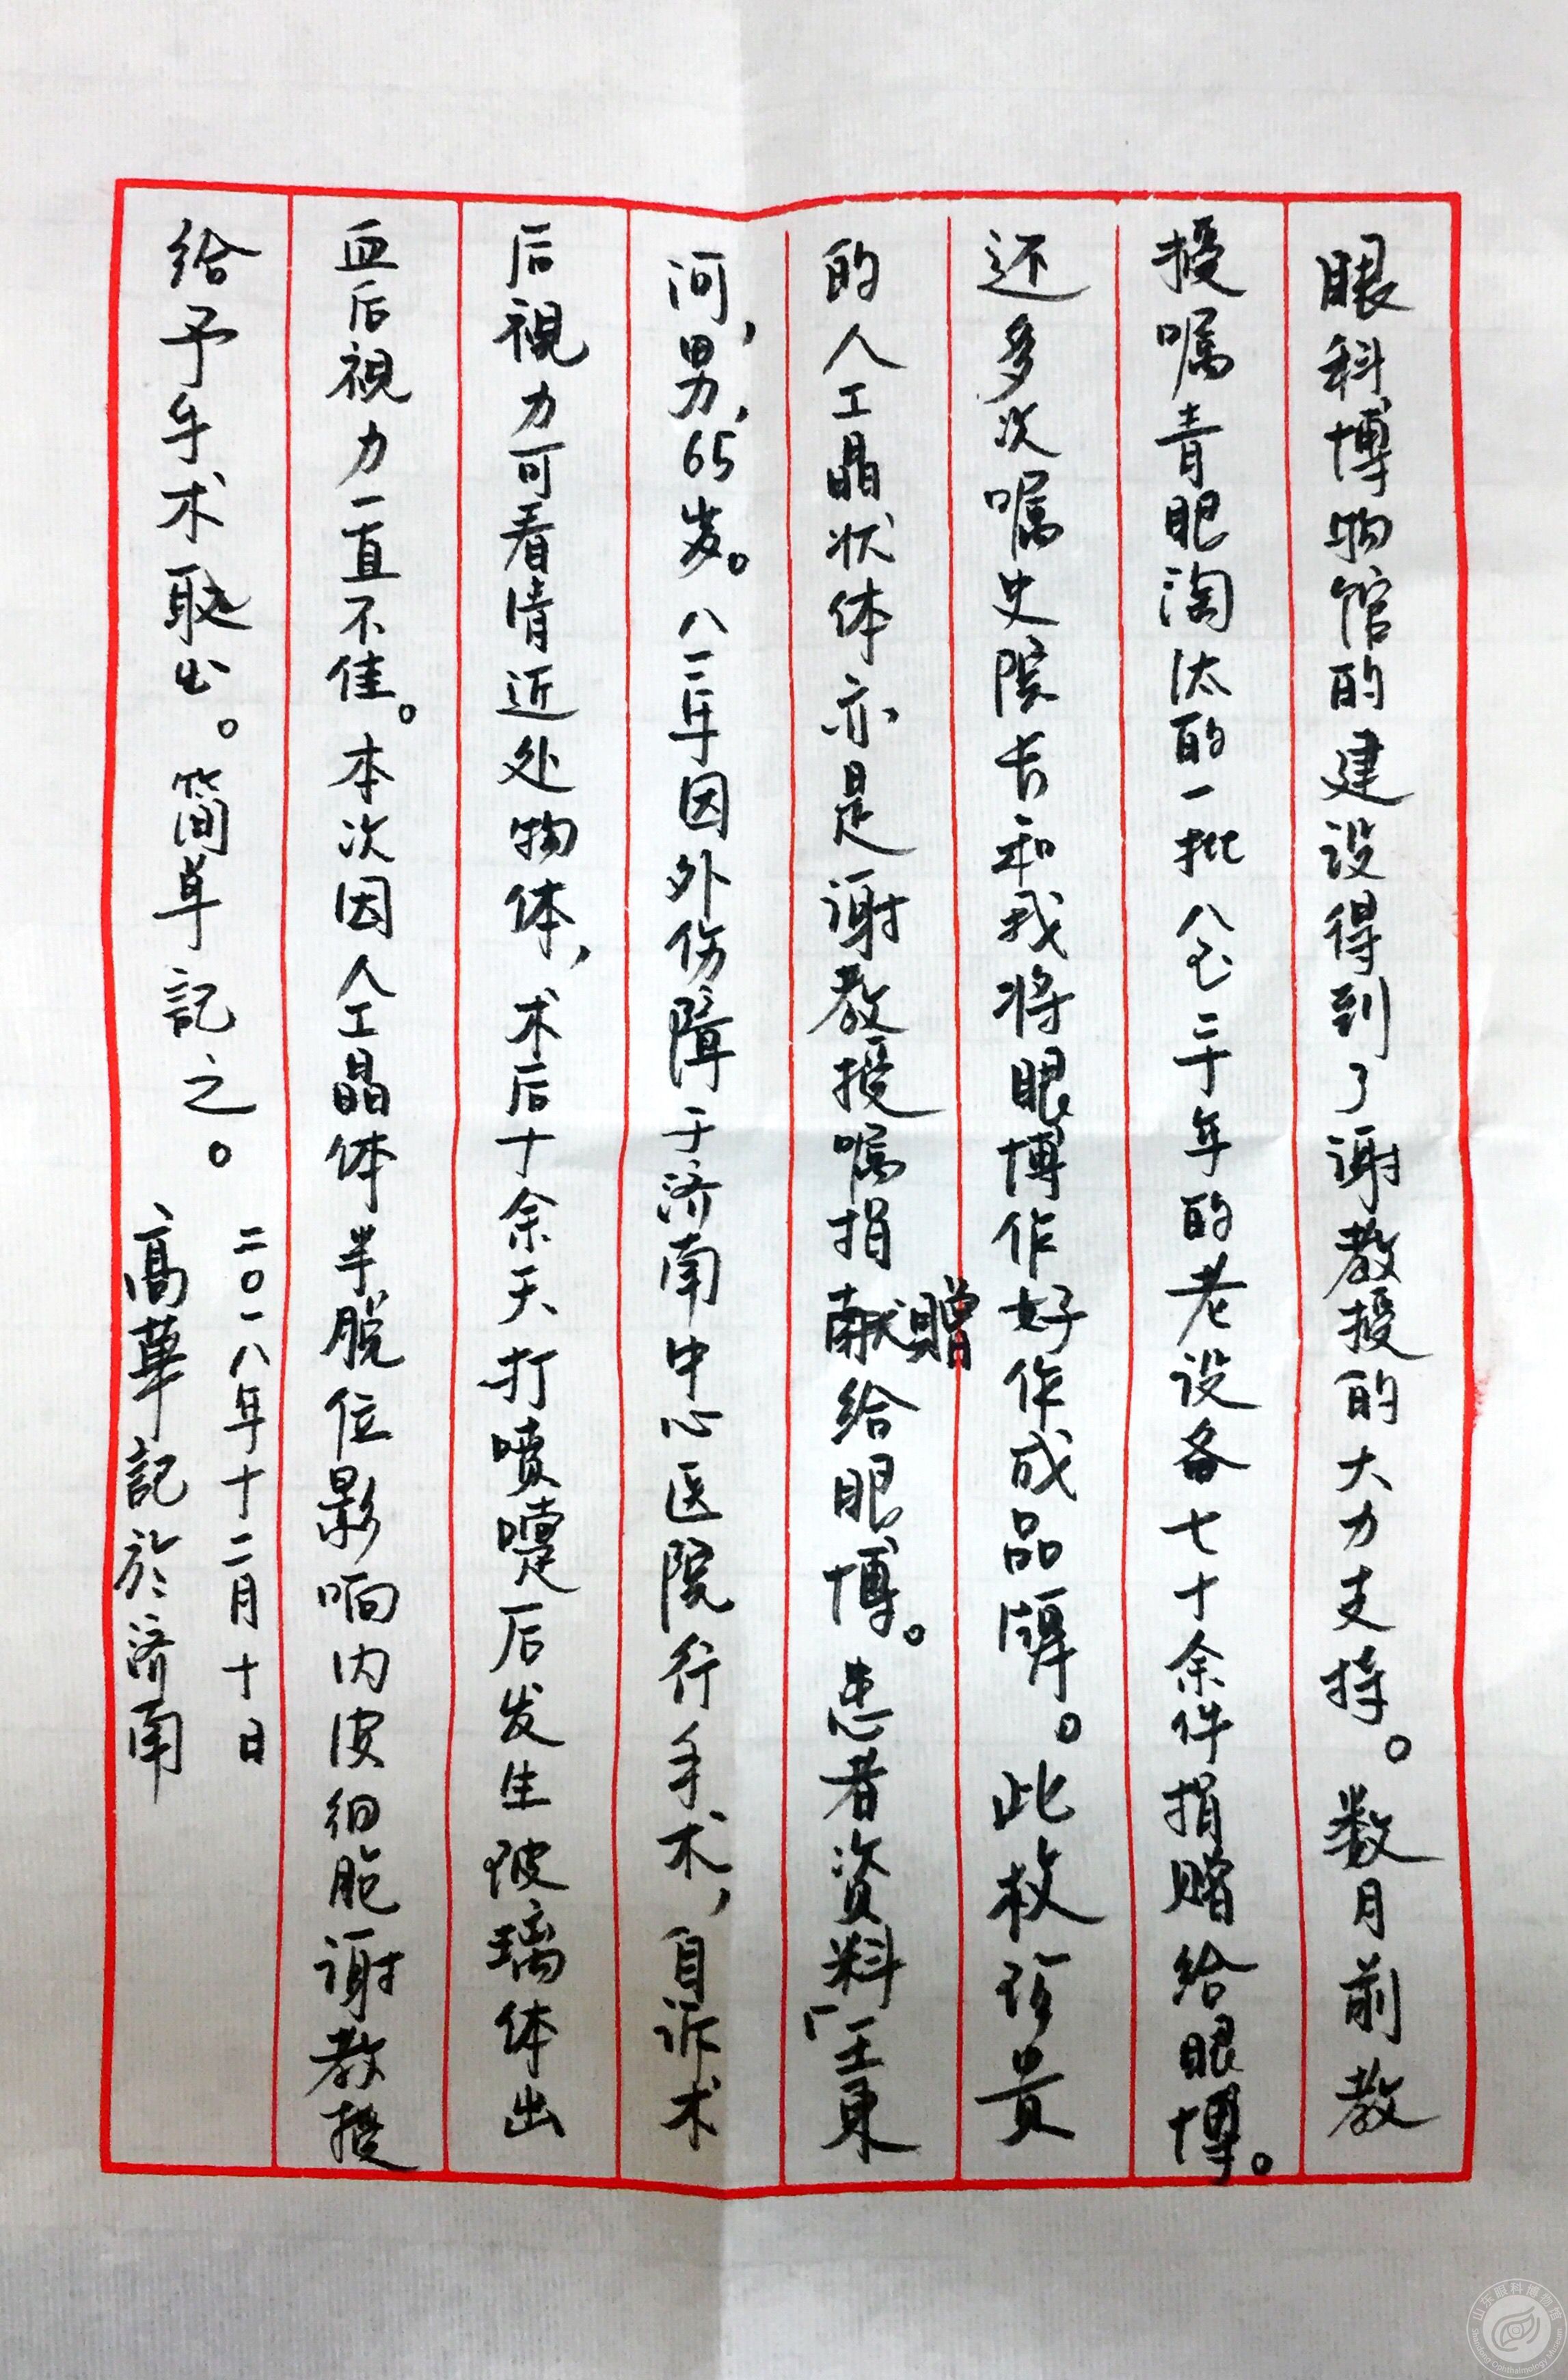 眼科博物馆的建设得到了谢教授的大力支持。数月前教
授嘱青眼淘汰的一批八九三十年的老设备七十余件捐赠给眼博。
还多次嘱史院长和我将眼博作好作成品牌。此枚珍贵
的人工晶状体亦是谢教授嘱捐献赠给眼博。患者资料「王东
河,男,65岁。八二年因外伤障于济南中心医院行手术,自诉术
后視力可看清近处物体,术后十余天打喷嚏后发生玻璃体出
血后視力一直不佳。本次因人工晶体半脱位影响内皮细胞谢教授
给予手术取出。简单記之。
二〇一八年十二月十日
高華記於济南
山东眼科博物馆
Shandong Ophthalmology Museum